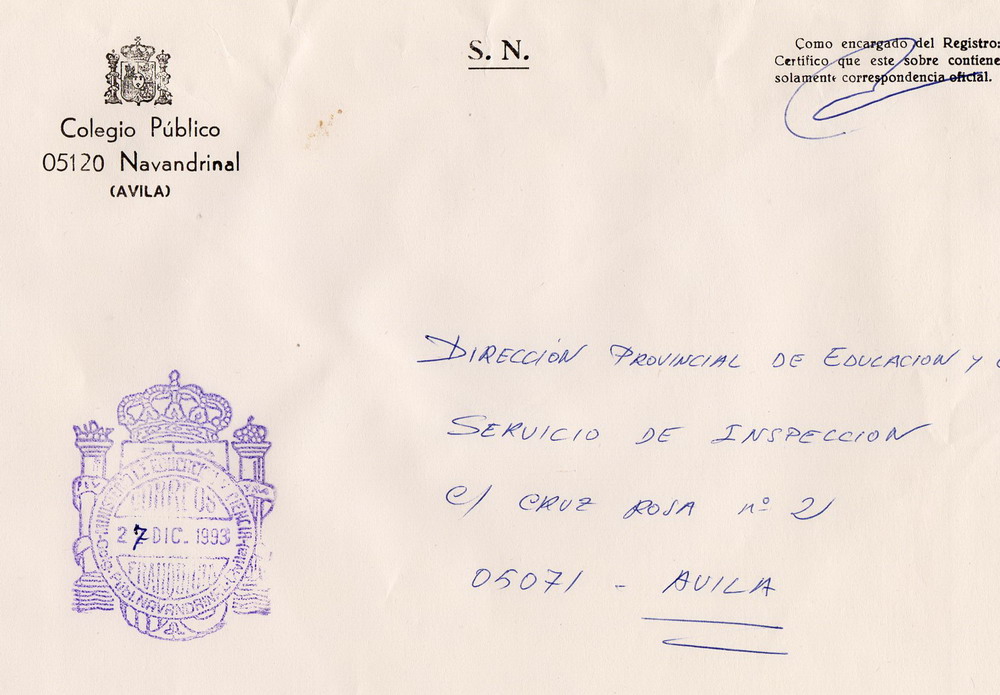 S. N.
Como encargado del Registro:
Certifico que este sobre contiene
solamente correspondencia oficial.
Colegio Público
05120 Navandrinal
(AVILA)
DIRECCIÓN PROVINCIAL DE EDUCACION Y
SERVICIO DE INSPECCION
C/ CRUZ ROJA nº 2
05071 - AVILA
MINISTERIO DE EDUCACION Y CIENCIA
CORREOS
27 DIC. 1993
FRANQUICIA
NAVANDRINAL